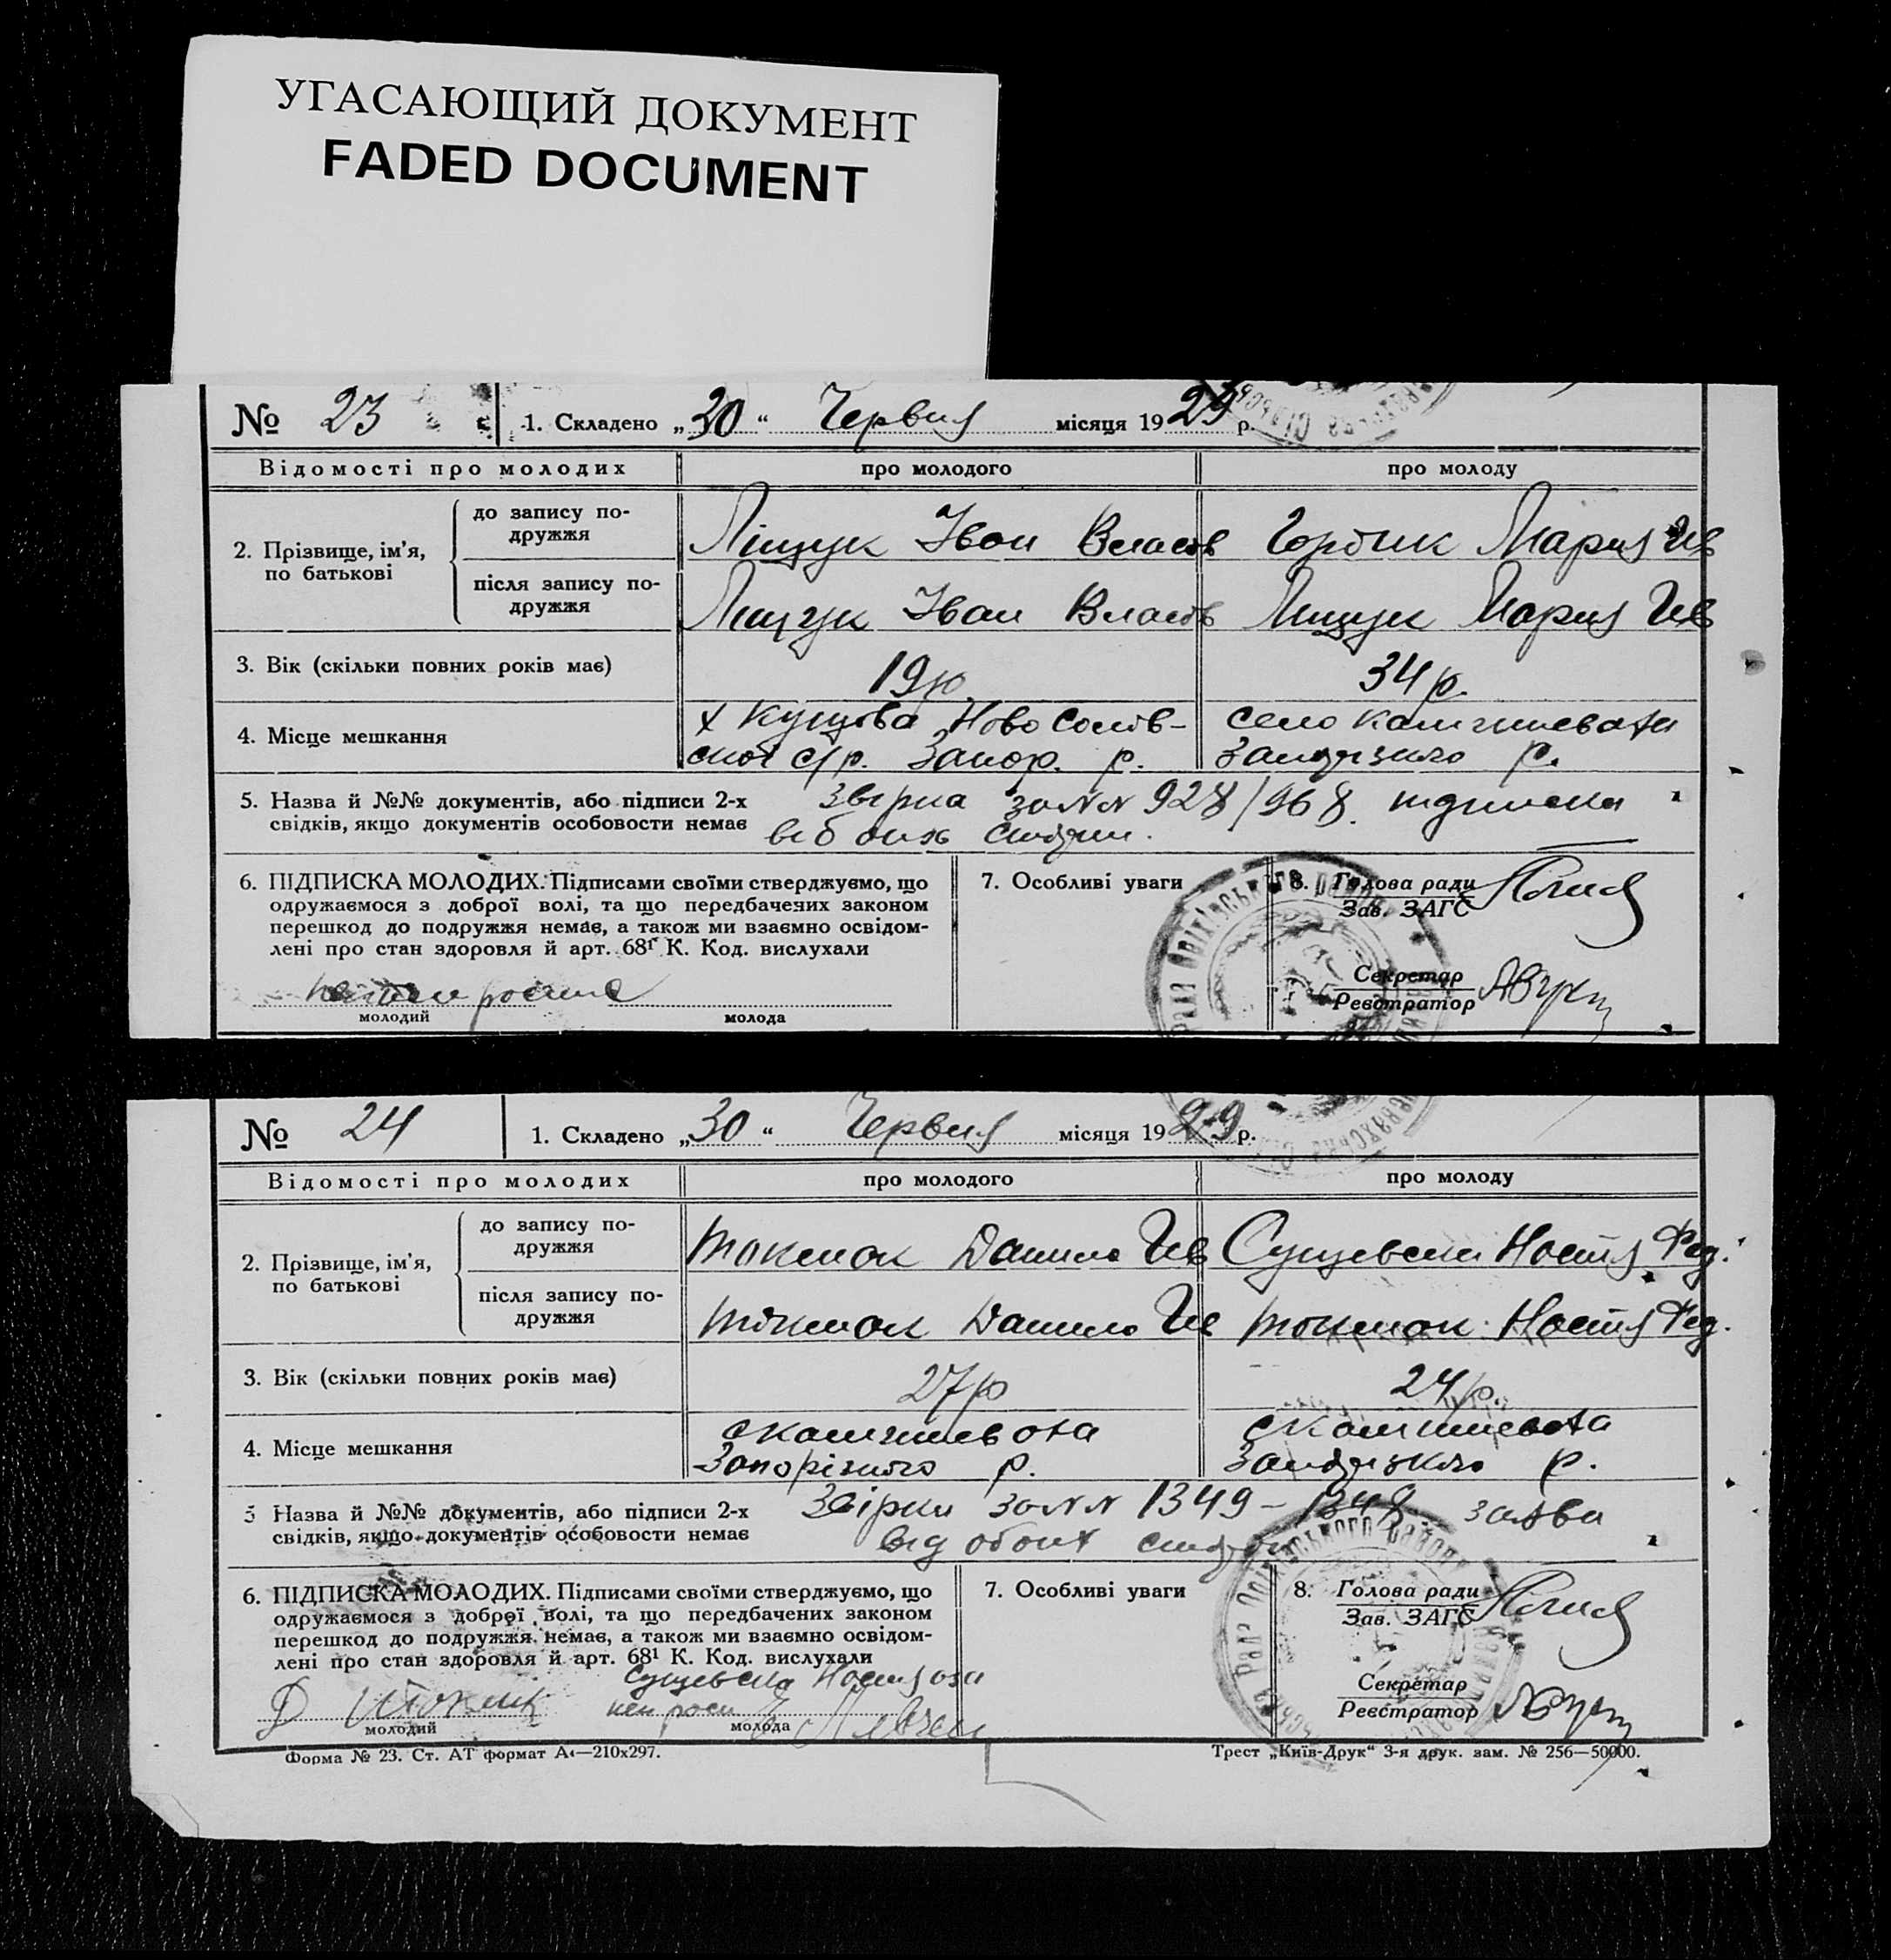 УГАСАЮЩИЙ ДОКУМЕНТ
FADED DOCUMENT
№ 23 1. Складено „30“ Червня місяця 1929 р.
Відомості про молодих про молодого про молоду
2. Прізвище, ім’я, по батькові
до запису по-
дружжя
Ліщук Іван Власов Мария Ив
після запису по-
дружжя
Лищук Іван Власов Лищук Мария Ив
3. Вік (скільки повних років має) 19 р. 34 р.
4. Місце мешкання
х Кущова Ново Солов- село
ској с/р. Запор. р. Запорізького р.
5. Назва й №№ документів, або підписи 2-х звірка за NN 928/968. підписка
свідків, якщо документів особовости немає
6. ПІДПИСКА МОЛОДИХ. Підписами своїми стверджуємо, що
одружаємося з доброї волі, та що передбачених законом
перешкод до подружжя немає, а також ми взаємно освідом-
лені про стан здоровля й арт. 68¹ К. Код. вислухали
молодий молода
7. Особливі уваги
8. Голова ради
Зав. ЗАГС
Секретар
Реєстратор
№ 24 1. Складено „30“ Червня місяця 1929 р.
Відомості про молодих про молодого про молоду
2. Прізвище, ім’я, по батькові
до запису по-
дружжя
Токмак Данило Ив Сущевска Настя Фед.
після запису по-
дружжя
Токмак Данило Ив Токмак Настя Фед.
3. Вік (скільки повних років має) 27 р 24 р.
4. Місце мешкання
Запорізького р. Запорізького р.
5 Назва й №№ документів, або підписи 2-х Звірка за NN 1349 – 1348. заява
свідків, якщо документів особовости немає від обоих сторон
6. ПІДПИСКА МОЛОДИХ. Підписами своїми стверджуємо, що
одружаємося з доброї волі, та що передбачених законом
перешкод до подружжя немає, а також ми взаємно освідом-
лені про стан здоровля й арт. 68¹ К. Код. вислухали
Сущевска Настя
молодий молода
7. Особливі уваги
8. Голова ради
Зав. ЗАГС
Секретар
Реєстратор
Форма № 23. Ст. АТ формат А4—210х297. Трест „Київ-Друк“ 3-я друк. зам. № 256—50000.